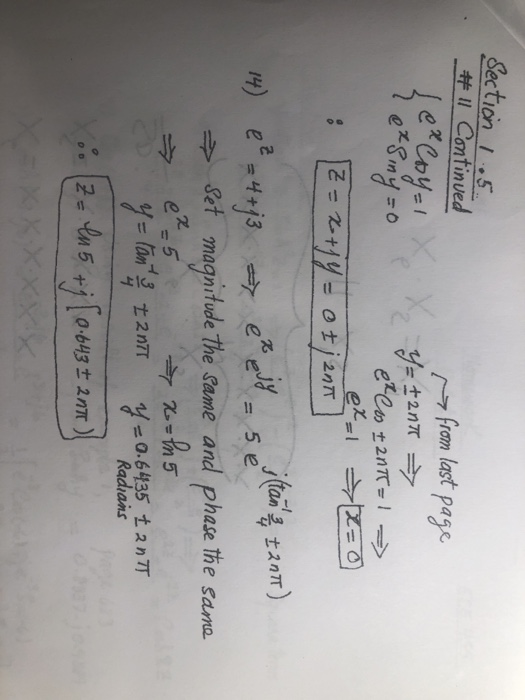 Section 1.5
#11 Continued
from last page
{ e^x Cos y = 1
e^x Sin y = 0
y = ± 2nπ ⇒
e^x Cos ± 2nπ = 1 ⇒
e^x = 1 ⇒ x = 0
: z = x + jy = 0 ± j2nπ
14) e^z = 4 + j3 ⇒ e^x e^jy = 5 e^j(tan^-1 3/4 ± 2nπ)
⇒ Set magnitude the same and phase the same
⇒ e^x = 5 ⇒ x = ln 5
y = tan^-1 3/4 ± 2nπ y = 0.6435 ± 2nπ
Radians
∴ z = ln 5 + j(0.643 ± 2nπ)